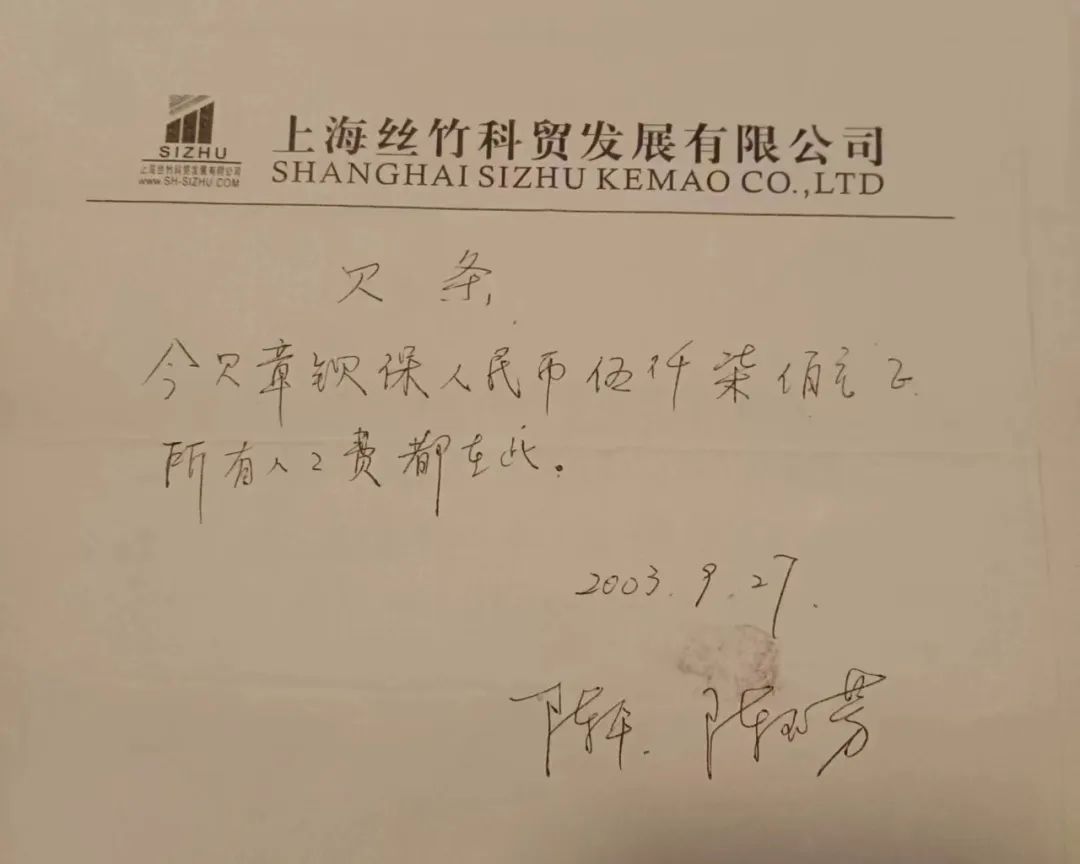 SIZHU
上海丝竹科贸发展有限公司
www.SH-SIZHU.COM
上海丝竹科贸发展有限公司
SHANGHAI SIZHU KEMAO CO.,LTD
欠 条
今欠章钡保人民币伍仟柒佰元正
所有人工费都在此。
2003.9.27.
陈平. 陈玉芳